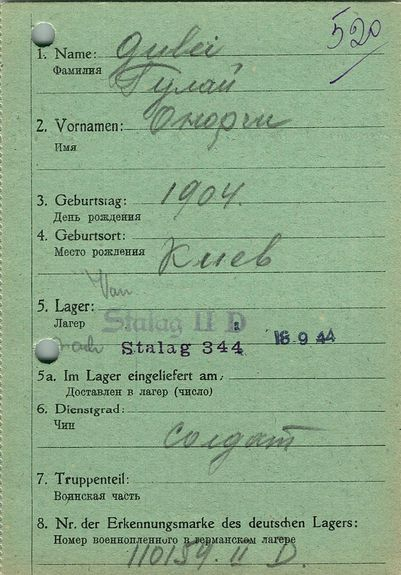 520
1. Name: Gulei
Фамилия Гулай
2. Vornamen: Онофри
Имя
3. Geburtstag: 1904.
День рождения
4. Geburtsort:
Место рождения Киев
Von
5. Lager: Stalag II D
Лагер
nach Stalag 344 18. 9. 44
5a. Im Lager eingeliefert am:
Доставлен в лагер (число)
6. Dienstgrad:
Чин солдат
7. Truppenteil:
Воинская часть
8. Nr. der Erkennungsmarke des deutschen Lagers:
Номер военнопленного в германском лагере
110159. II D.